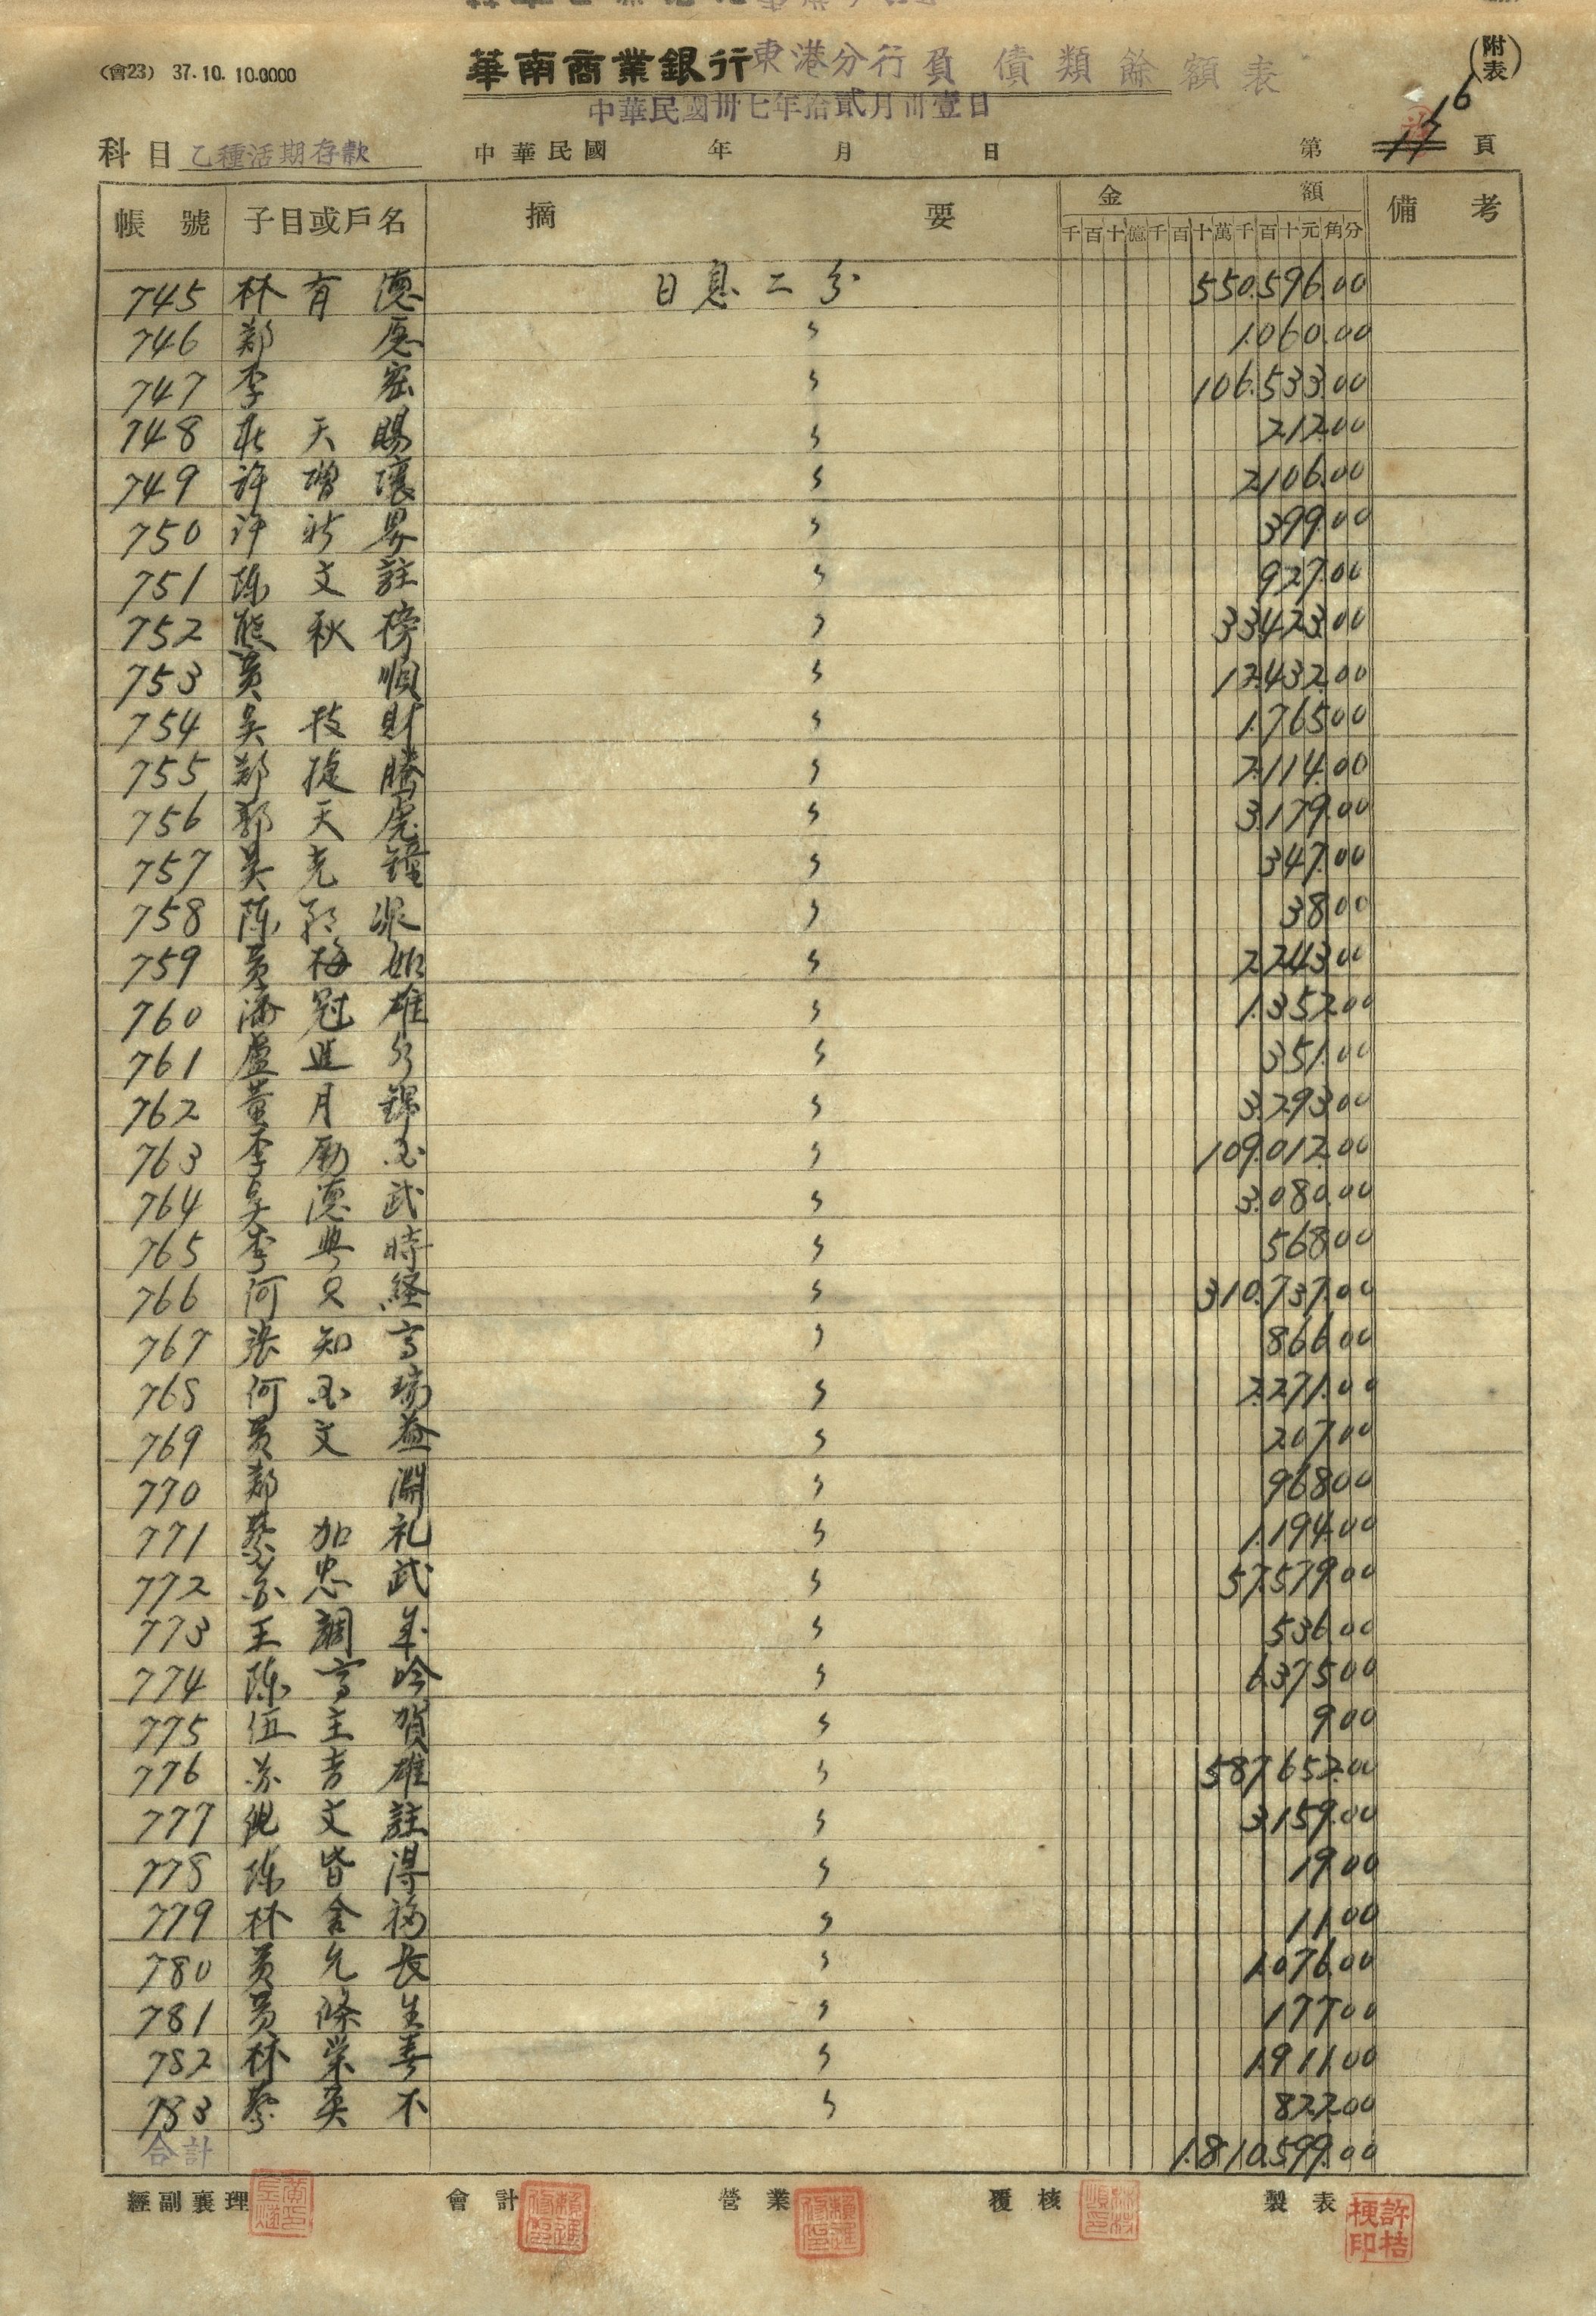 (會23) 37.10. 10.0000
華南商業銀行東港分行負債類餘額表
(附表)
中華民國卅七年拾貳月卅壹日
科目 乙種活期存款 中華民國 年 月 日 第 16 頁
帳號 子目或戶名 摘要 金額 備考
千百十億千百十萬千百十元角分
745 林有德 日息二分 550.596.00
746 鄭 愿 〃 1.060.00
747 李 密 〃 106.533.00
748 天賜 〃 212.00
749 許 〃 2.106.00
750 許 界 〃 399.00
751 陈文註 〃 927.00
752 熊秋榜 〃 33.423.00
753 黃 順 〃 12.432.00
754 吴枝財 〃 1.765.00
755 鄭捷騰 〃 2.114.00
756 郭天虎 〃 3.179.00
757 吴 鐘 〃 347.00
758 陈 〃 38.00
759 黃梅 〃 2.243.00
760 潘冠雄 〃 1.352.00
761 盧進 〃 351.00
762 董月錦 〃 3.293.00
763 李 〃 109.012.00
764 吴德武 〃 3.080.00
765 李 時 〃 568.00
766 何只経 〃 310.737.00
767 張知高 〃 866.00
768 何 瑞 〃 2.271.00
769 黃文益 〃 207.00
770 淵 〃 968.00
771 蔡加礼 〃 1.194.00
772 苏忠武 〃 57.579.00
773 王調 〃 536.00
774 陈 吟 〃 6.375.00
775 伍主賀 〃 9.00
776 苏吉雄 〃 587.652.00
777 文註 〃 3.159.00
778 陈皆得 〃 19.00
779 林 福 〃 11.00
780 黃允長 〃 1.076.00
781 黃條生 〃 177.00
782 林栄春 〃 1.911.00
783 蔡英不 〃 822.00
合計 1.810.599.00
經副襄理 會計 營業 覆核 製表
許桔梗印